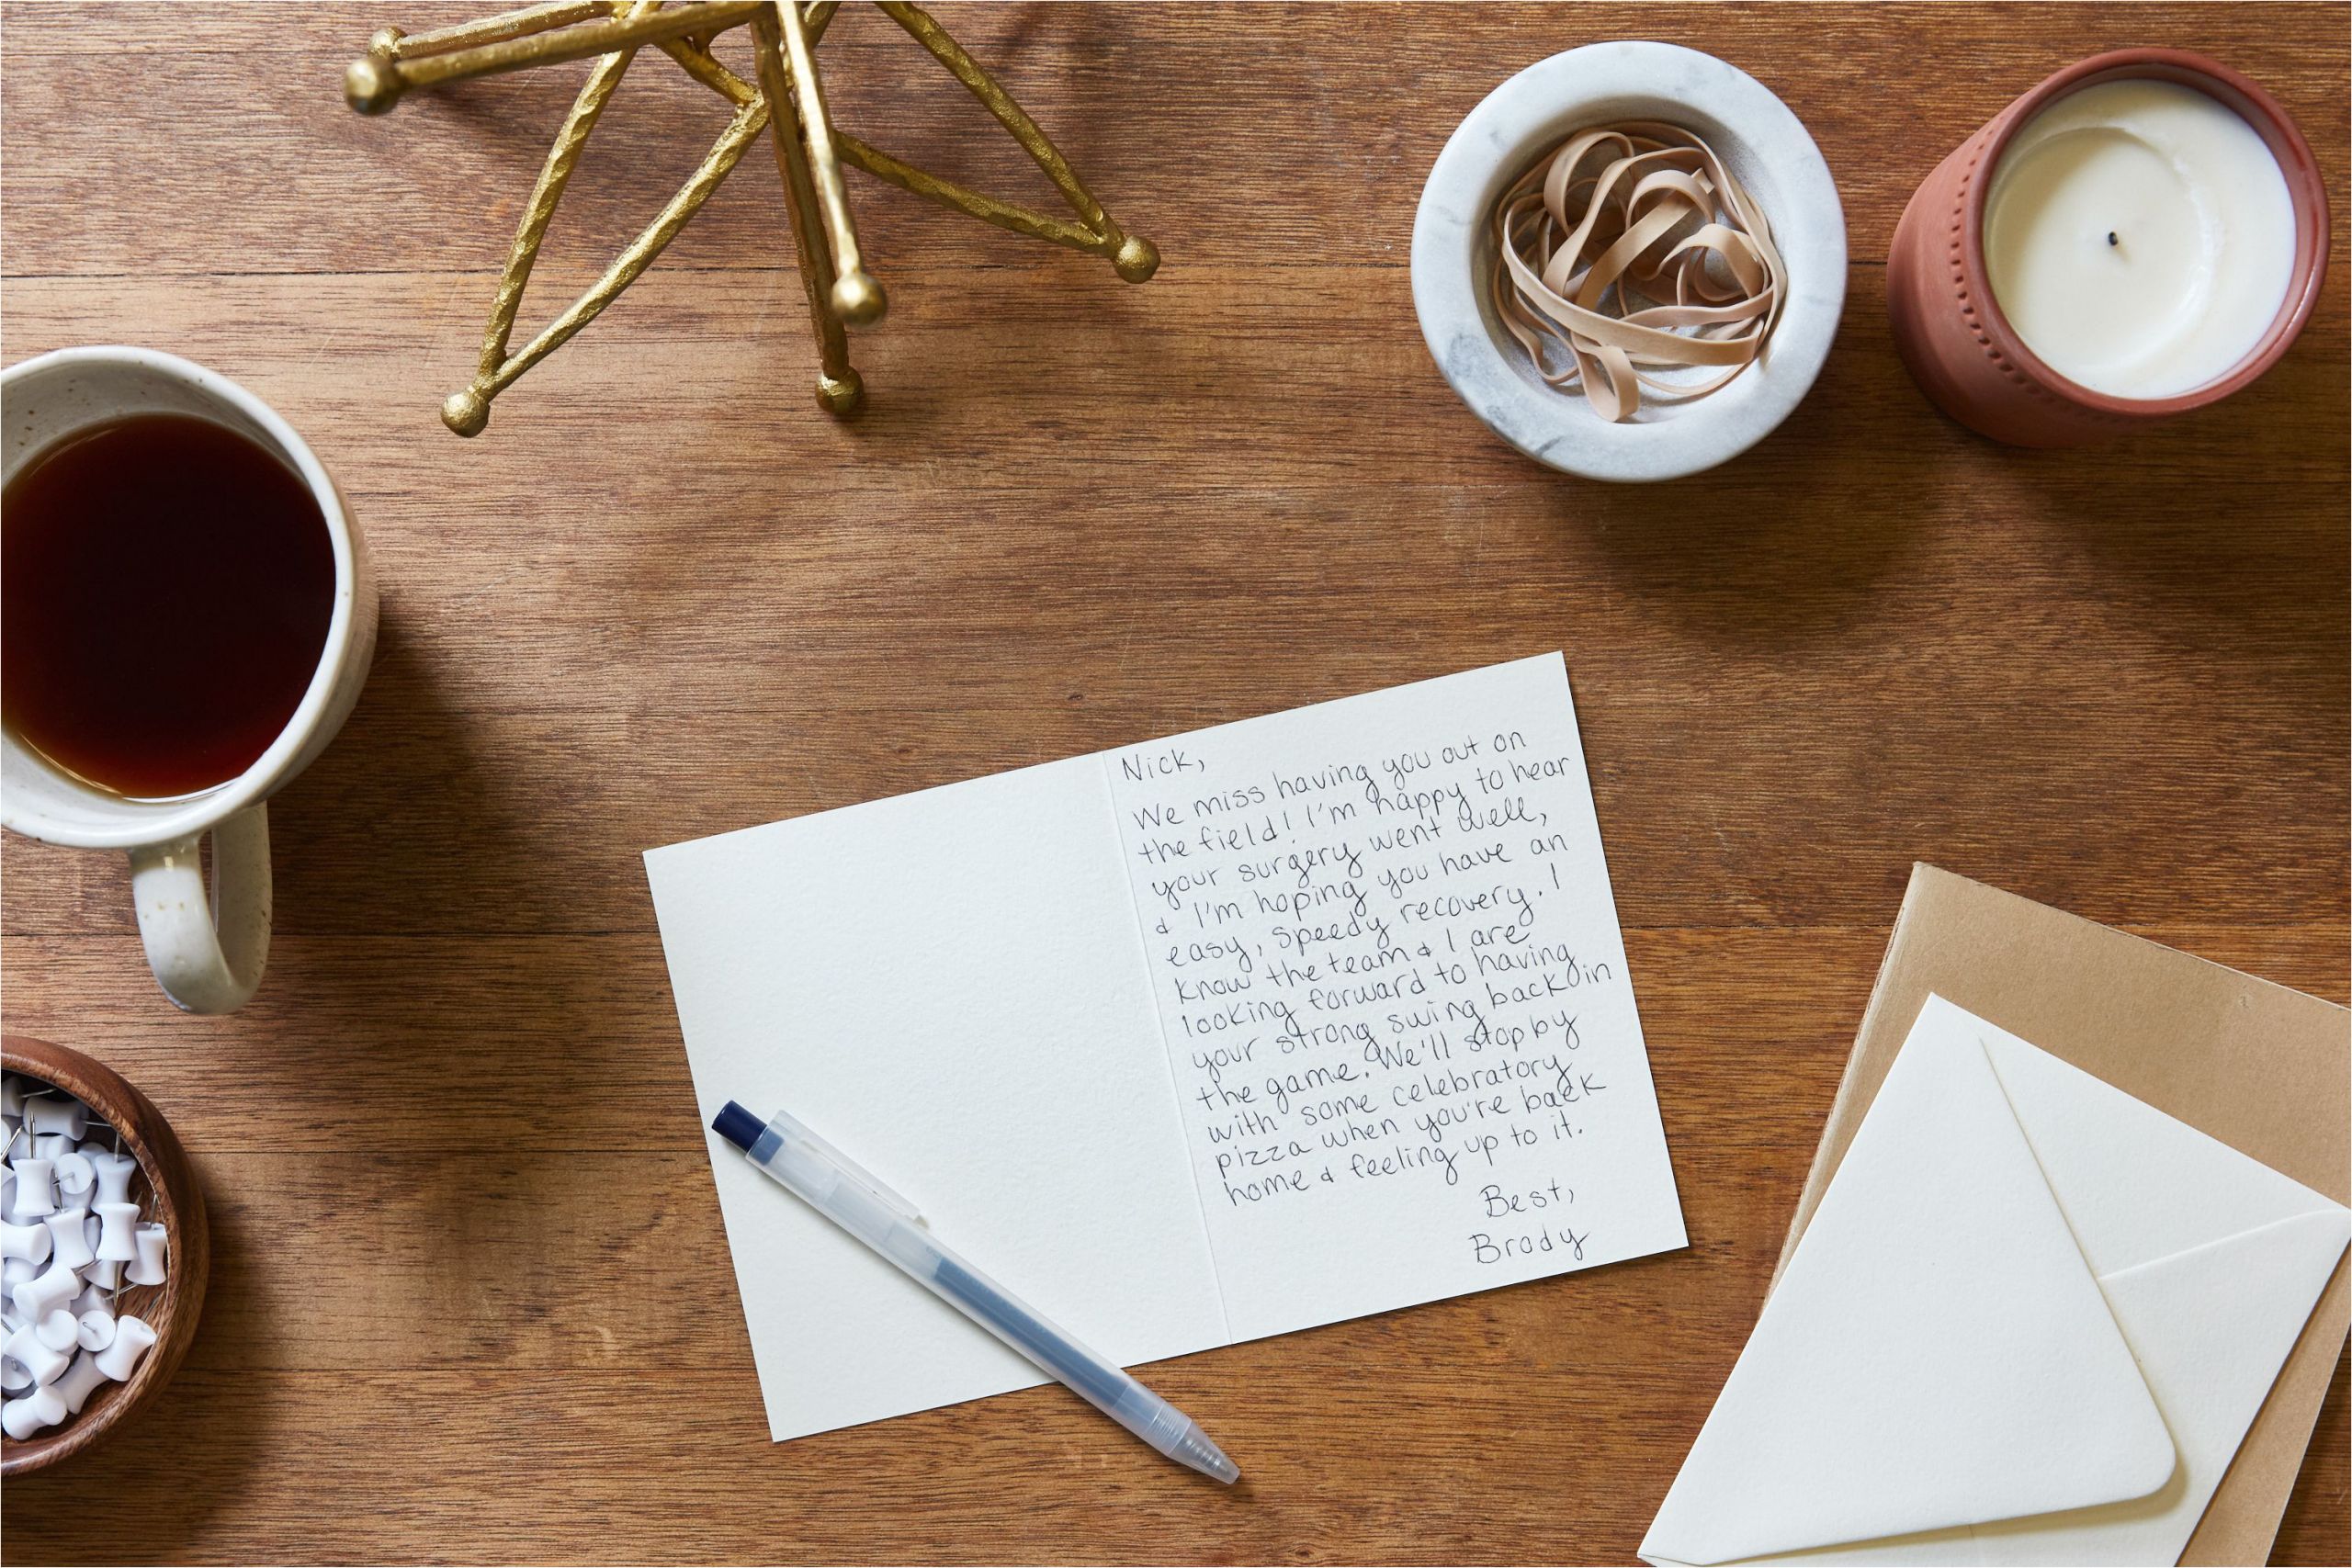 Nick,
We miss having you out on
the field! I'm happy to hear
your surgery went well,
& I'm hoping you have an
easy, speedy recovery. I
know the team & I are
looking forward to having
your strong swing back in
the game. We'll stop by
with some celebratory
pizza when you're back
home & feeling up to it.
Best,
Brady